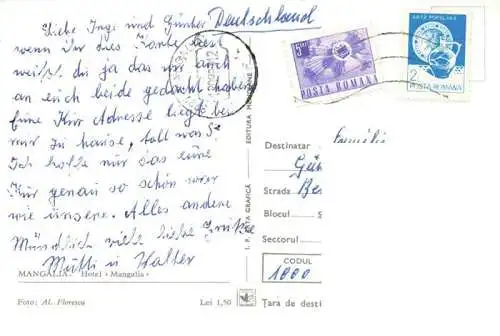 Liebe Inge und Günter Deutschland
wenn Ihr dies Karte liest
weißt du ja das wir auch
an beide gedacht haben
Eine Kur Adresse liegt bei
mir zu hause, toll was?
Ich hoffe nur das eure
Kur genau so schön war
wie unsere. Alles andere
Mündlich viele liebe Grüße
Mutti u Walter
MANGALIA: Hotel «Mangalia»
Foto: Al. Florescu Lei 1,50
I. P. ARTA GRAFICĂ
EDITURA
5 LEI
POSTA ROMANA
ARTA POPULARA
2
POSTA ROMANA
Familie
Destinatar
Strada
Blocul
Sectorul
CODUL
1000
Țara de desti